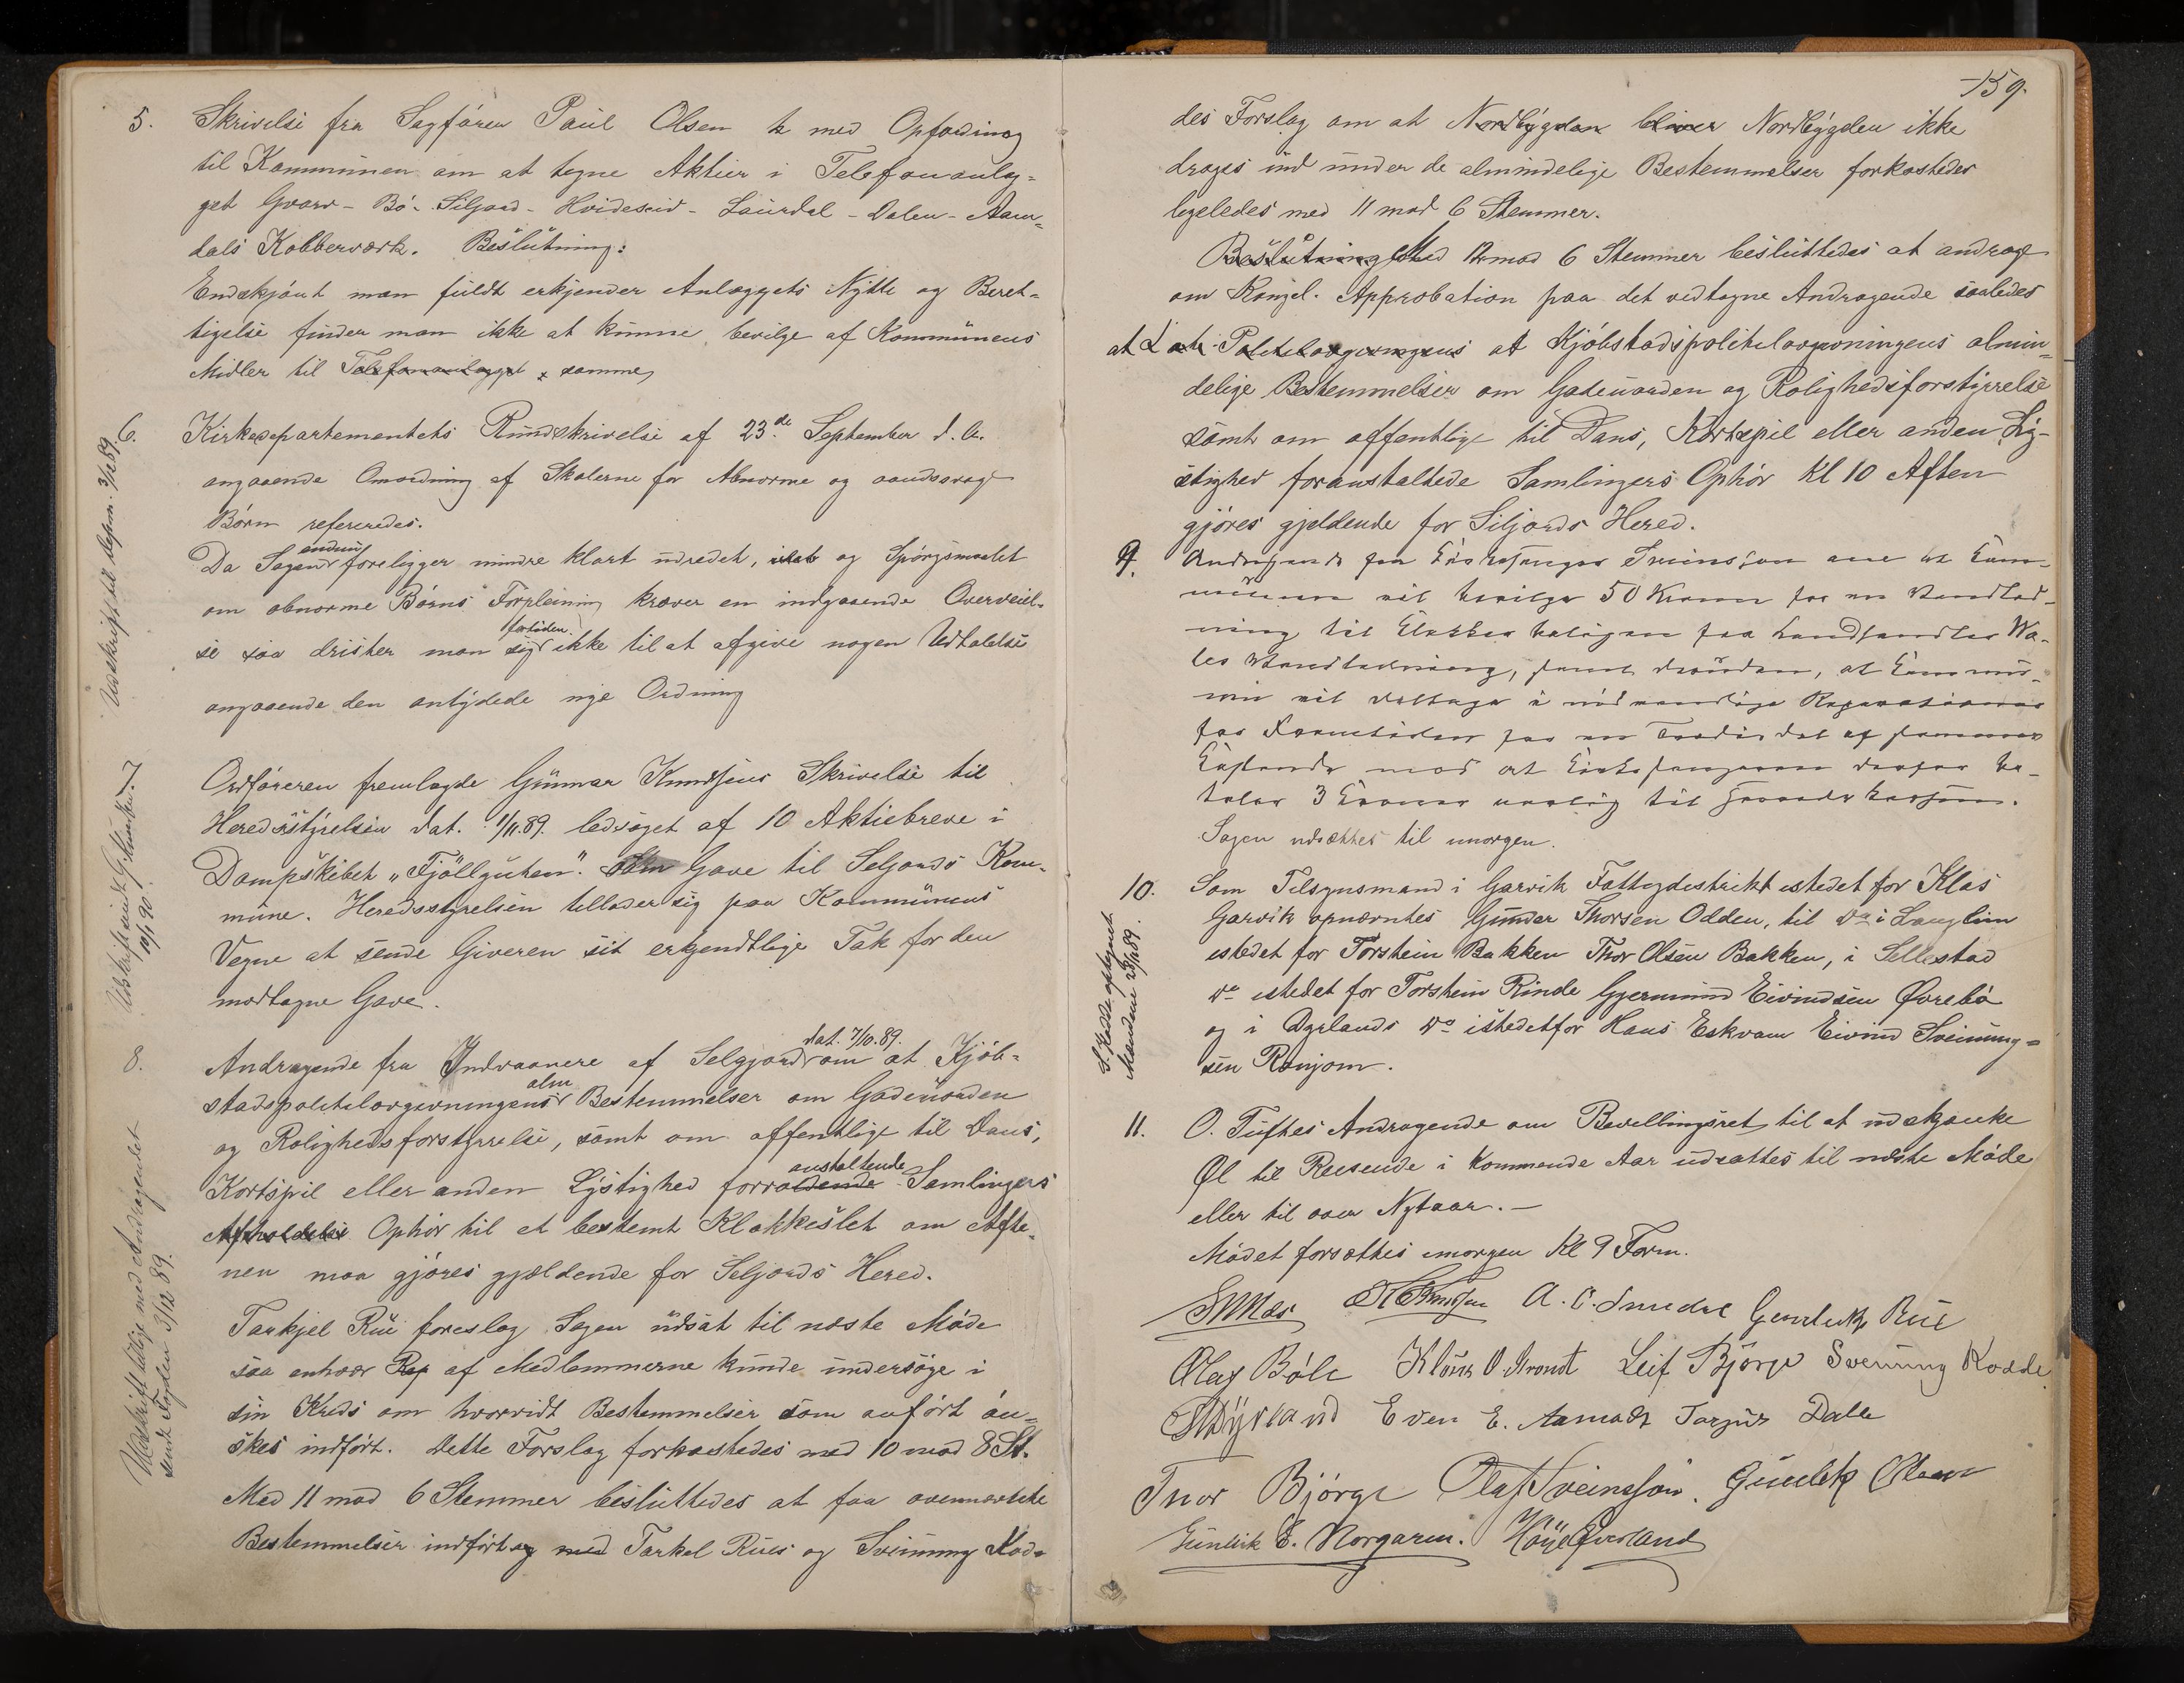 5. Skrivelse fra Sagfører Paul Olsen k med Opfordring
til Kommunen om at tegne Aktier i Telefonanlæg-
get Gvarv - Bø - Siljord - Hvideseid - Laurdal - Dalen - Aam-
dals Kobberværk. Beslutning:
Endskjønt man fuldt erkjender Anlæggets Nytte og Beret-
tigelse finder man ikke at kunne bevilge af Kommunens
Midler til Telefonanlægget samme
6. Kirkedepartementets Rundskrivelse af 23de September d. A.
angaaende Omordning af Skolerne for Abnorme og aandssvage
Børn refereredes.
Da Sagen endnu foreligger mindre klart udredet, og Spørgsmaalet
om abnorme Børns Forpleining kræver en indgaaende Overveiel-
se saa drister man sig fortiden ikke til at afgive nogen Udtalelse
angaaende den antydede nye Ordning
Udskrift til depm. 3/12 89.
7. Ordføreren fremlagde Gunnar Knudsens Skrivelse til
Heredsstyrelsen dat. 1/11.89. ledsaget af 10 Aktiebreve i
Dampskibet „Fjöllguten". som Gave til Seljords Kom-
mune. Heredsstyrelsen tillader sig paa Kommunens
Vegne at sende Giveren sit erkjendtlige Tak for den
modtagne Gave.
Udskrift sendt G. Knudsen
10/1 90.
8. Andragende fra Indvaanere af Selgjord dat. 7/10.89. om at Kjøb-
stadspolitilovgivningens alm Bestemmelser om Gadeuorden
og Rolighedsforstyrrelse, samt om offentlige til Dans,
Kortspil eller anden Lystighed forroldende anstaltende Samlingers
Afholdelse Ophør til et bestemt Klokkeslet om Afte-
nen maa gjøres gjældende for Seljords Hered.
Tarkjel Rue foreslog Sagen udsat til næste Møde
saa enhver Rep af Medlemmerne kunde undersøge i
sin Kreds om hvorvidt Bestemmelser som anført øn-
skes indført. Dette Forslag forkastedes med 10 mod 8 St.
Med 11 mod 6 Stemmer besluttedes at faa ovennævnte
Bestemmelser indført og med Tarkel Rues og Sveinung Kod-
Udskrift tillige med Andragendet
sendt Fogden 3/12 89.
159.
des Forslag om at Nordbygden bliver Nordbygden ikke
drages ind under de almindelige Bestemmelser forkastedes
ligeledes med 11 mod 6 Stemmer.
Beslutning Med 12 mod 6 Stemmer besluttedes at andrage
om Kongel. Approbation paa det vedtagne Andragende saaledes
at Politilovgivningens at Kjøbstadspolitilovgivningens almin-
delige Bestemmelser om Gadeuorden og Rolighedsforstyrrelse
samt om offentlige til Dans, Kortspil eller anden Ly-
stighed foranstaltede Samlingers Ophør Kl 10 Aften
gjøres gjeldende for Siljords Hered.
9. Andragende fra Kirkesanger Sveinsson om at Kom-
munen vil bevilge 50 Kroner for en Vandled-
ning til Klokkerboligen fra Landhandler Wa-
les Vandledning, samt desuden, at Kommu-
nen vil deltage i nødvendige Reparationer
for Fremtiden for en Trediedel af sammes
Kostende mod at Kirkesangeren derfor be-
taler 3 Kroner aarlig til Heredskassen.
Sagen udsættes til imorgen.
10. Som Tilsynsmand i Garvik Fattigdestrikt istedet for Klas
Garvik opnævntes Gunder Thorsen Odden, til do i Langlim
istedet for Torstein Bakken Thor Olsen Bakken, i Sellestad
do istedet for Torstein Rinde Gjermund Eivindsen Øvrebø
og i Dyrlands do istedetfor Hans Eskvam Eivind Sveinung-
sen Ronjom.
11. O. Tuftes Andragende om Bevillingsret til at udskjænke
Øl til Reisende i kommende Aar udsattes til næste Møde
eller til over Nytaar. —
Mødet forsættes imorgen Kl 9 Form.
A. O. Smedal Gundleik Rue
Olag Bøle Klaus O. Leif Bjørge Svenung Kodde
Dyrland Even E. Aamodt Tarjus Dalle
Thor Bjørge Olaf Sveinsson. Gunleik Olsen
Gunleik E. Norgaren.